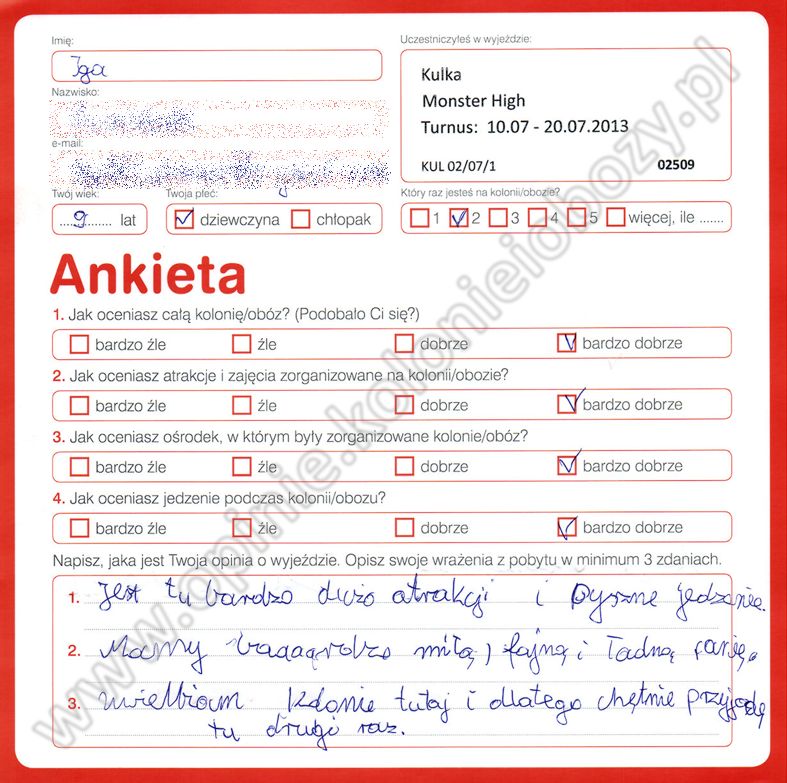 Imię:
Iga
Uczestniczyłeś w wyjeździe:
Kulka
Monster High
Turnus: 10.07 - 20.07.2013
KUL 02/07/1 02509
Nazwisko:
e-mail:
Twój wiek:
9 lat
Twoja płeć:
dziewczyna chłopak
Który raz jesteś na kolonii/obozie?
1 2 3 4 5 więcej, ile .......
Ankieta
1. Jak oceniasz całą kolonię/obóz? (Podobało Ci się?)
bardzo źle źle dobrze bardzo dobrze
2. Jak oceniasz atrakcje i zajęcia zorganizowane na kolonii/obozie?
bardzo źle źle dobrze bardzo dobrze
3. Jak oceniasz ośrodek, w którym były zorganizowane kolonie/obóz?
bardzo źle źle dobrze bardzo dobrze
4. Jak oceniasz jedzenie podczas kolonii/obozu?
bardzo źle źle dobrze bardzo dobrze
Napisz, jaka jest Twoja opinia o wyjeździe. Opisz swoje wrażenia z pobytu w minimum 3 zdaniach.
1. Jest tu bardzo dużo atrakcji i pyszne jedzenie.
2. Mamy baaaardzo miłą, fajną i ładną panię.
3. uwielbiam kolonie tutaj i dlatego chętnie przyjadę
tu drugi raz.
www.opinie.kolonieiobozy.pl